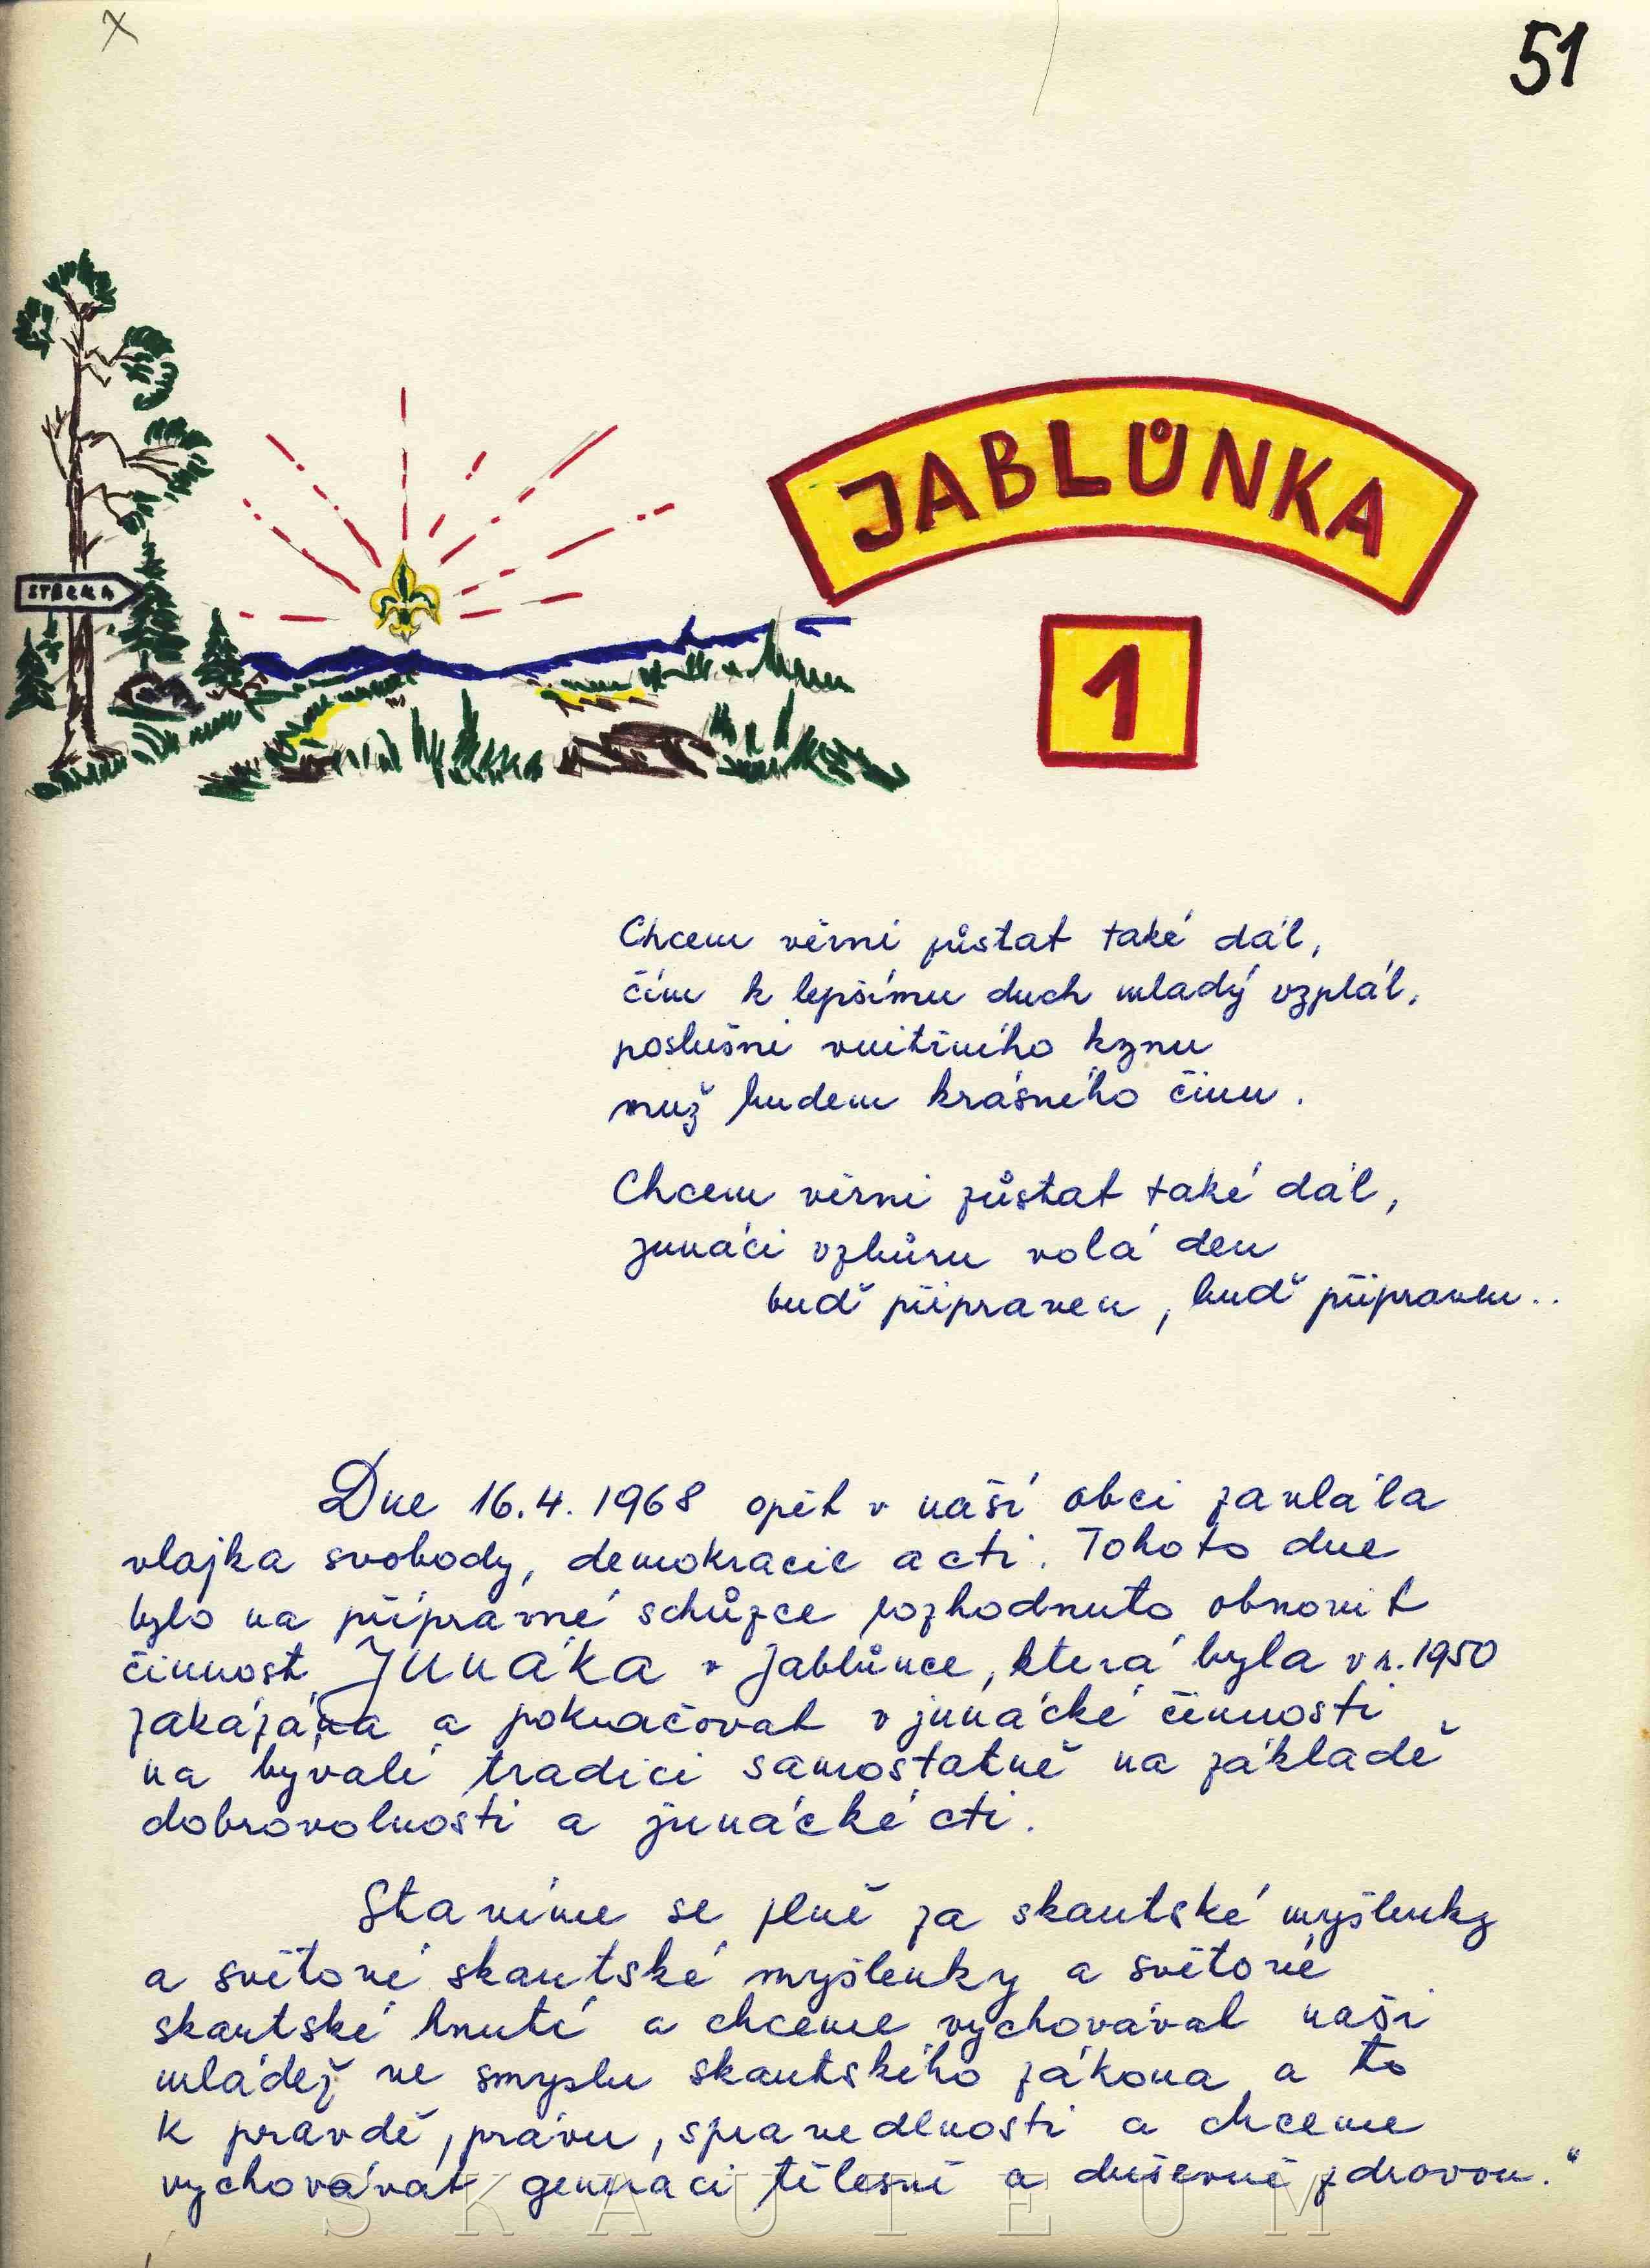 x
51
JABLŮNKA
1
STEZKA
Chcem věrni zůstat také dál,
čím k lepšímu duch mladý vzplál,
poslušni vnitřního kynu
muž budem krásného činu.
Chcem věrni zůstat také dál,
junáci vzhůru volá den
buď připraven, buď připraven..
Dne 16.4.1968 opět v naší obci zavlála
vlajka svobody, demokracie a cti. Tohoto dne
bylo na přípravné schůzce rozhodnuto obnovit
činnost JUNÁKA v Jablůnce, která byla v r. 1950
zakázána a pokračovat v junácké činnosti
na bývalé tradici samostatně na základě
dobrovolnosti a junácké cti.
Stavíme se plně za skautské myšlenky
a světové skautské myšlenky a světové
skautské hnutí a chceme vychovávat naši
mládež ve smyslu skautského zákona a to
k pravdě, právu, spravedlnosti a chceme
vychovávat generaci tělesně a duševně zdravou."
SKAUTEUM